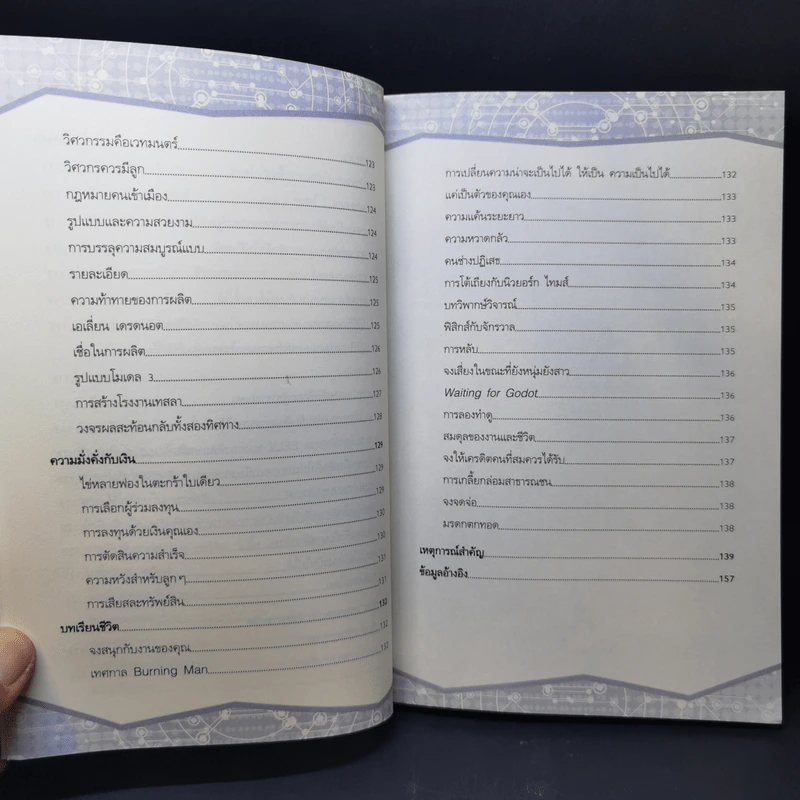 วิศวกรรมคือเวทมนตร์ 123
วิศวกรควรมีลูก 123
กฎหมายคนเข้าเมือง 124
รูปแบบและความสวยงาม 124
การบรรลุความสมบูรณ์แบบ 124
รายละเอียด 125
ความท้าทายของการผลิต 125
เอเลี่ยน เดรดนอต 125
เชื่อในการผลิต 126
รูปแบบโมเดล 3 126
การสร้างโรงงานเทสลา 127
วงจรผลสะท้อนกลับทั้งสองทิศทาง 128
ความมั่งคั่งกับเงิน 129
ไข่หลายฟองในตะกร้าใบเดียว 129
การเลือกผู้ร่วมลงทุน 129
การลงทุนด้วยเงินคุณเอง 130
การตัดสินความสำเร็จ 130
ความหวังสำหรับลูกๆ 131
การเสียสละทรัพย์สิน 131
บทเรียนชีวิต 132
จงสนุกกับงานของคุณ 132
เทศกาล Burning Man 132
การเปลี่ยนความน่าจะเป็นไปได้ ให้เป็น ความเป็นไปได้ 132
แค่เป็นตัวของคุณเอง 133
ความแค้นระยะยาว 133
ความหวาดกลัว 133
คนช่างปฏิเสธ 134
การโต้เถียงกับนิวยอร์ก ไทมส์ 134
บทวิพากษ์วิจารณ์ 135
ฟิสิกส์กับจักรวาล 135
การหลับ 135
จงเสี่ยงในขณะที่ยังหนุ่มยังสาว 136
Waiting for Godot 136
การลองทำดู 136
สมดุลของงานและชีวิต 137
จงให้เครดิตคนที่สมควรได้รับ 137
การเกลี้ยกล่อมสาธารณชน 138
จงจดจ่อ 138
มรดกตกทอด 138
เหตุการณ์สำคัญ 139
ข้อมูลอ้างอิง 157